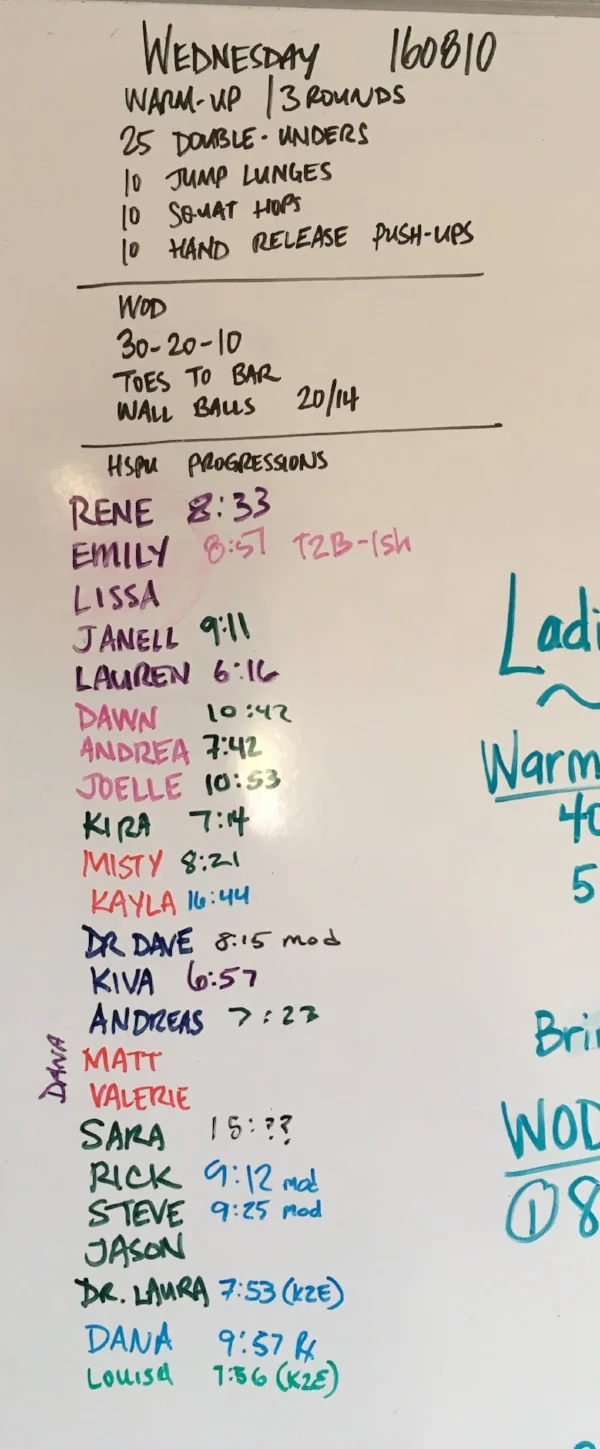 WEDNESDAY 160810
WARM-UP / 3 ROUNDS
25 DOUBLE-UNDERS
10 JUMP LUNGES
10 SQUAT HOPS
10 HAND RELEASE PUSH-UPS
WOD
30-20-10
TOES TO BAR
WALL BALLS 20/14
HSPU PROGRESSIONS
RENE 8:33
EMILY 8:57 T2B-ISH
LISSA
JANELL 9:11
LAUREN 6:16
DAWN 10:42
ANDREA 7:42
JOELLE 10:53
KIRA 7:14
MISTY 8:21
KAYLA 16:44
DR DAVE 8:15 mod
KIVA 6:57
ANDREAS 7:23
DANA
MATT
VALERIE
SARA 15:??
RICK 9:12 mod
STEVE 9:25 mod
JASON
DR. LAURA 7:53 (K2E)
DANA 9:57 Rx
LOUISA 7:56 (K2E)
Ladi
Warm
40
5
Bri
WOD
① 8